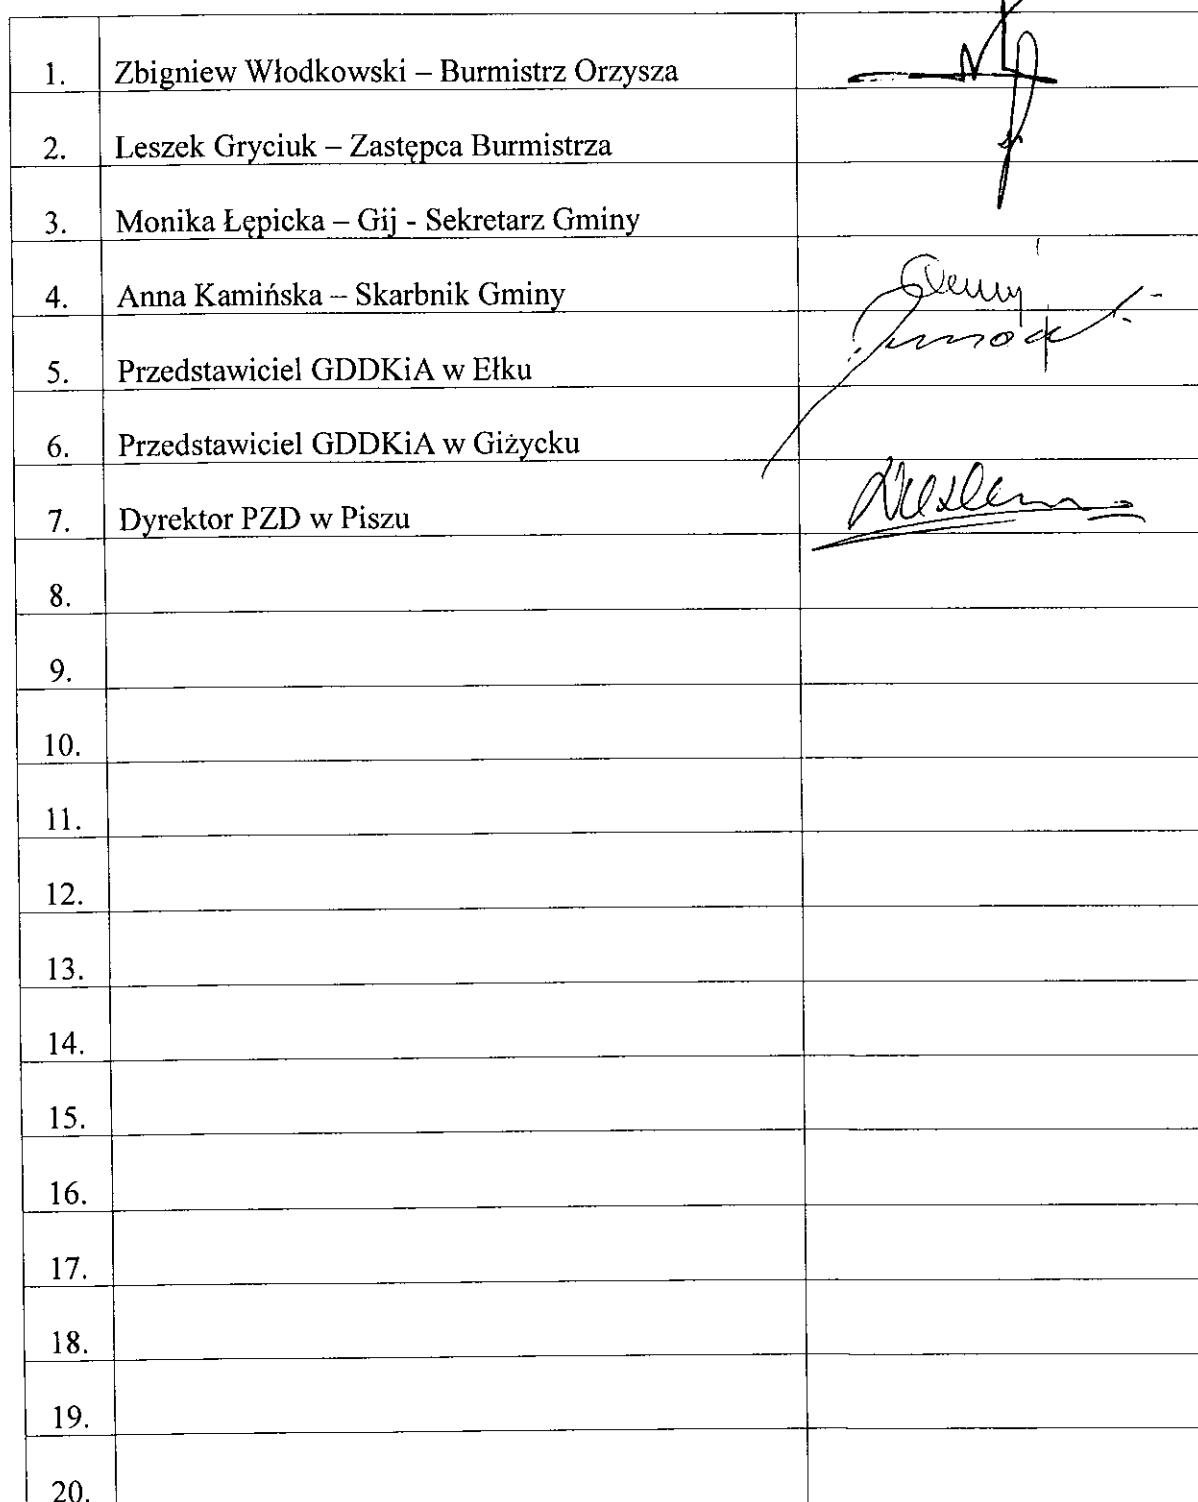 1. Zbigniew Włodkowski – Burmistrz Orzysza
2. Leszek Gryciuk – Zastępca Burmistrza
3. Monika Łępicka – Gij - Sekretarz Gminy
4. Anna Kamińska – Skarbnik Gminy
5. Przedstawiciel GDDKiA w Ełku
6. Przedstawiciel GDDKiA w Giżycku
7. Dyrektor PZD w Piszu
8.
9.
10.
11.
12.
13.
14.
15.
16.
17.
18.
19.
20.